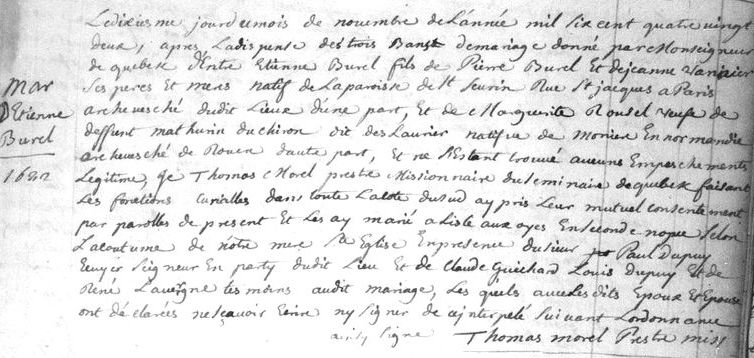 Le dixiesme jour du mois de novembre de L'année mil six cent quatre vingt
deux, apres La dispense des trois Bans de mariage donné par Monseigneur
de quebek d'Entre Etienne Burel fils de Pierre Burel Et de jeanne
ses pere et mere natif de La paroisse de St Seurin Rue St jacques a Paris
Mar
archevesché dudit Lieux d'une part, Et de Marguerite Rousel veufe de
D'Etienne
deffunt mathurin duchiron dit des Laurier natifve de en normandie
Burel
archevesché de Rouen d'aute part, Et ne s'Estant trouvé aucuns Empeschements
1682
Legitime, Je Thomas Morel prestre Missionnaire du seminaire de quebek faisant
Les fonctions Curialles dans toute La Cote du sud ay pris Leur mutuel consentement
par parolles de present Et Les ay marié a Lisle aux oyes En seconde nopce selon
La coutume de notre mere Ste Eglise En presence du sieur Paul Dupuy
Ecuyer Seigneur En party dudit Lieu Et de Claude Guichard Louis Dupuy Et de
René Lavergne tesmoins audit mariage, Les quels avec Les dits Epoux Et Epouse
ont déclarées ne sçavoir Ecrire ny signer de ce interpelé suivant Lordonnance
ainsy signe Thomas morel Prestre miss